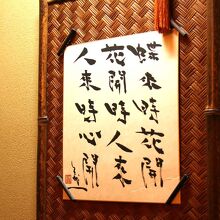 蝶来時花開
花開時人来
人来時心開